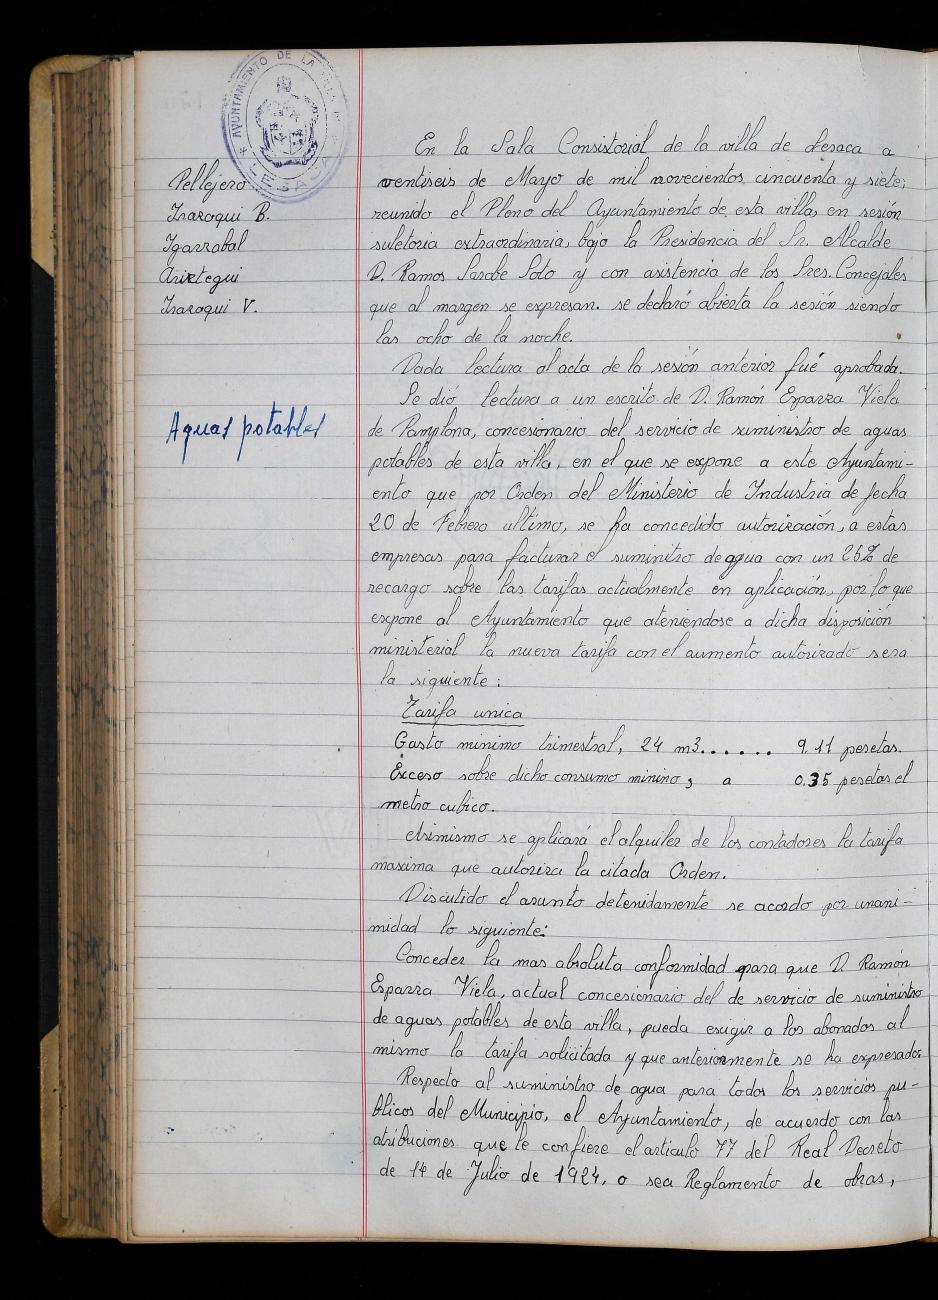 AYUNTAMIENTO DE LA VILLA DE
* LESACA *
Pellejero
Iraroqui B.
Igarrabal
Ariztegui
Iraroqui V.
En la Sala Consistorial de la villa de Lesaca a
ventiseis de Mayo de mil novecientos cincuenta y siete;
reunido el Pleno del Ayuntamiento de esta villa, en sesión
suletoria extraordinaria, bajo la Presidencia del Sr. Alcalde
D. Ramos Sarobe Soto y con asistencia de los Sres. Concejales
que al margen se expresan. se declaró abierta la sesión siendo
las ocho de la noche.
Dada lectura al acta de la sesión anterior fué aprobada.
Aguas potables
Se dió lectura a un escrito de D. Ramón Esparza Viela
de Pamplona, concesionario del servicio de suministro de aguas
potables de esta villa, en el que se expone a este Ayuntami-
ento que por Orden del Ministerio de Industria de fecha
20 de Febrero ultimo, se ha concedido autorización, a estas
empresas para facturar el suminitro de agua con un 25% de
recargo sobre las tarifas actualmente en aplicación, por lo que
expone al Ayuntamiento que ateniendose a dicha disposición
ministerial la nueva tarifa con el aumento autorizado sera
la siguiente:
Tarifa unica
Gasto minimo trimestral, 24 m3...... 9.11 pesetas.
Exceso sobre dicho consumo minino, a 0.35 pesetas el
metro cubico.
Asimismo se aplicará el alquiler de los contadores la tarifa
maxima que autoriza la citada Orden.
Discutido el asunto detenidamente se acordo por unani-
midad lo siguiente:
Conceder la mas absoluta conformidad para que D. Ramón
Esparza Viela, actual concesionario del de servicio de suministro
de aguas potables de esta villa, pueda exigir a los abonados al
mismo la tarifa solicitada y que anteriormente se ha expresado.
Respecto al suministro de agua para todos los servicios pu-
blicos del Municipio, el Ayuntamiento, de acuerdo con las
atribuciones que le confiere el articulo 77 del Real Decreto
de 14 de Julio de 1924, o sea Reglamento de obras,